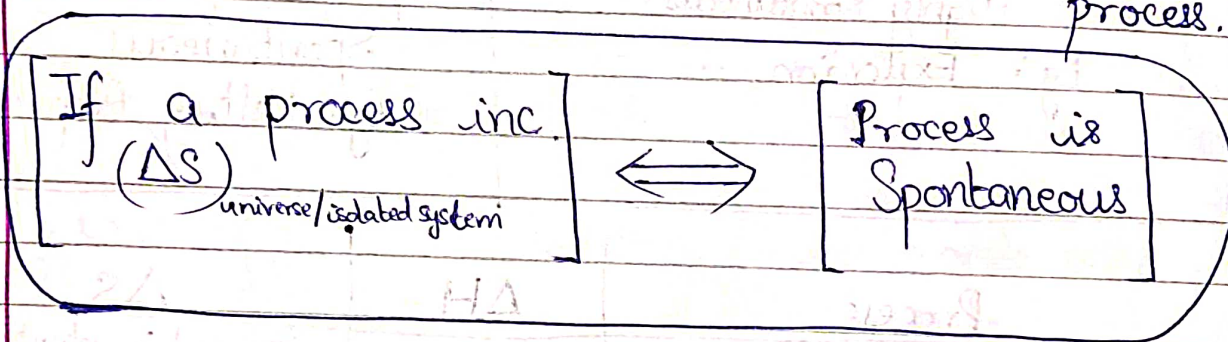 process.
If a process inc.
(ΔS) universe/isolated system
⟺
Process is
Spontaneous
Process ΔH ΔS